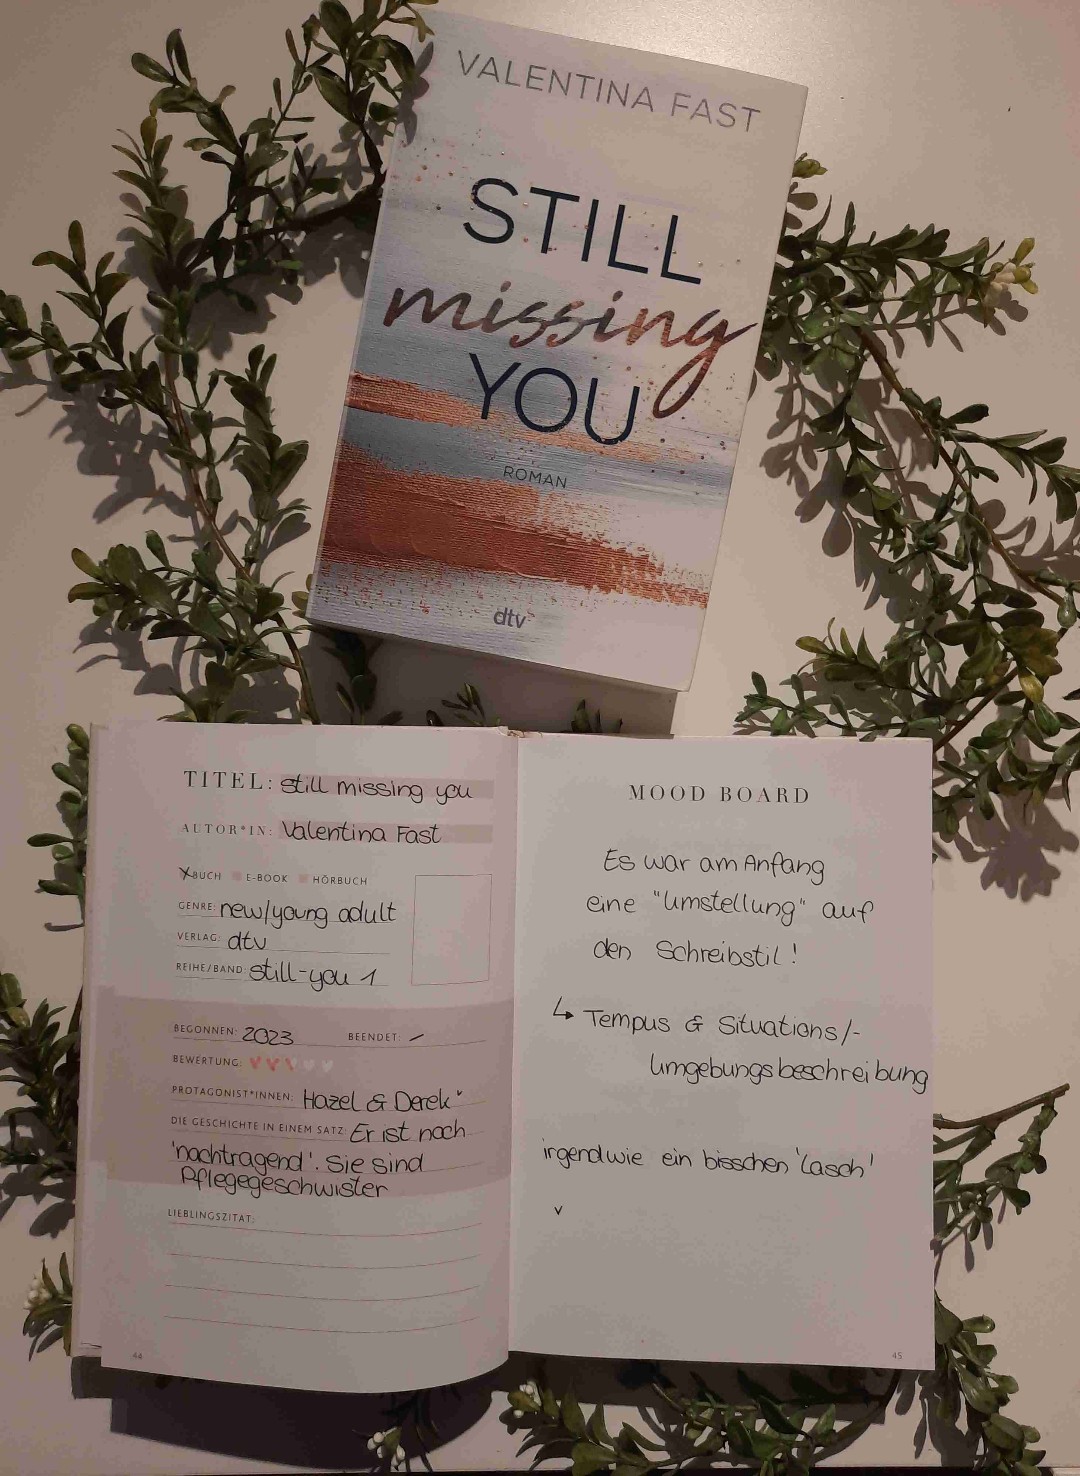 VALENTINA FAST
STILL
missing
YOU
ROMAN
dtv
TITEL: still missing you
AUTOR*IN: Valentina Fast
BUCH E-BOOK HÖRBUCH
GENRE: new/young adult
VERLAG: dtv
REIHE/BAND: still-you 1
BEGONNEN: 2023 BEENDET: /
BEWERTUNG:
PROTAGONIST*INNEN: Hazel & Derek
DIE GESCHICHTE IN EINEM SATZ: Er ist noch
'nachtragend'. Sie sind
Pflegegeschwister
LIEBLINGSZITAT:
44
MOOD BOARD
Es war am Anfang
eine "Umstellung" auf
den Schreibstil!
↳ Tempus & Situations/-
Umgebungsbeschreibung
irgendwie ein bisschen 'lasch'
v
45